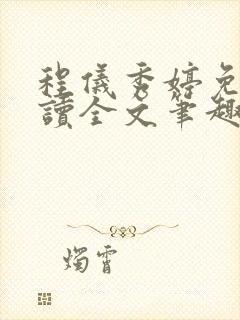 程儀秀婷免
讀全文筆趣
燭霄